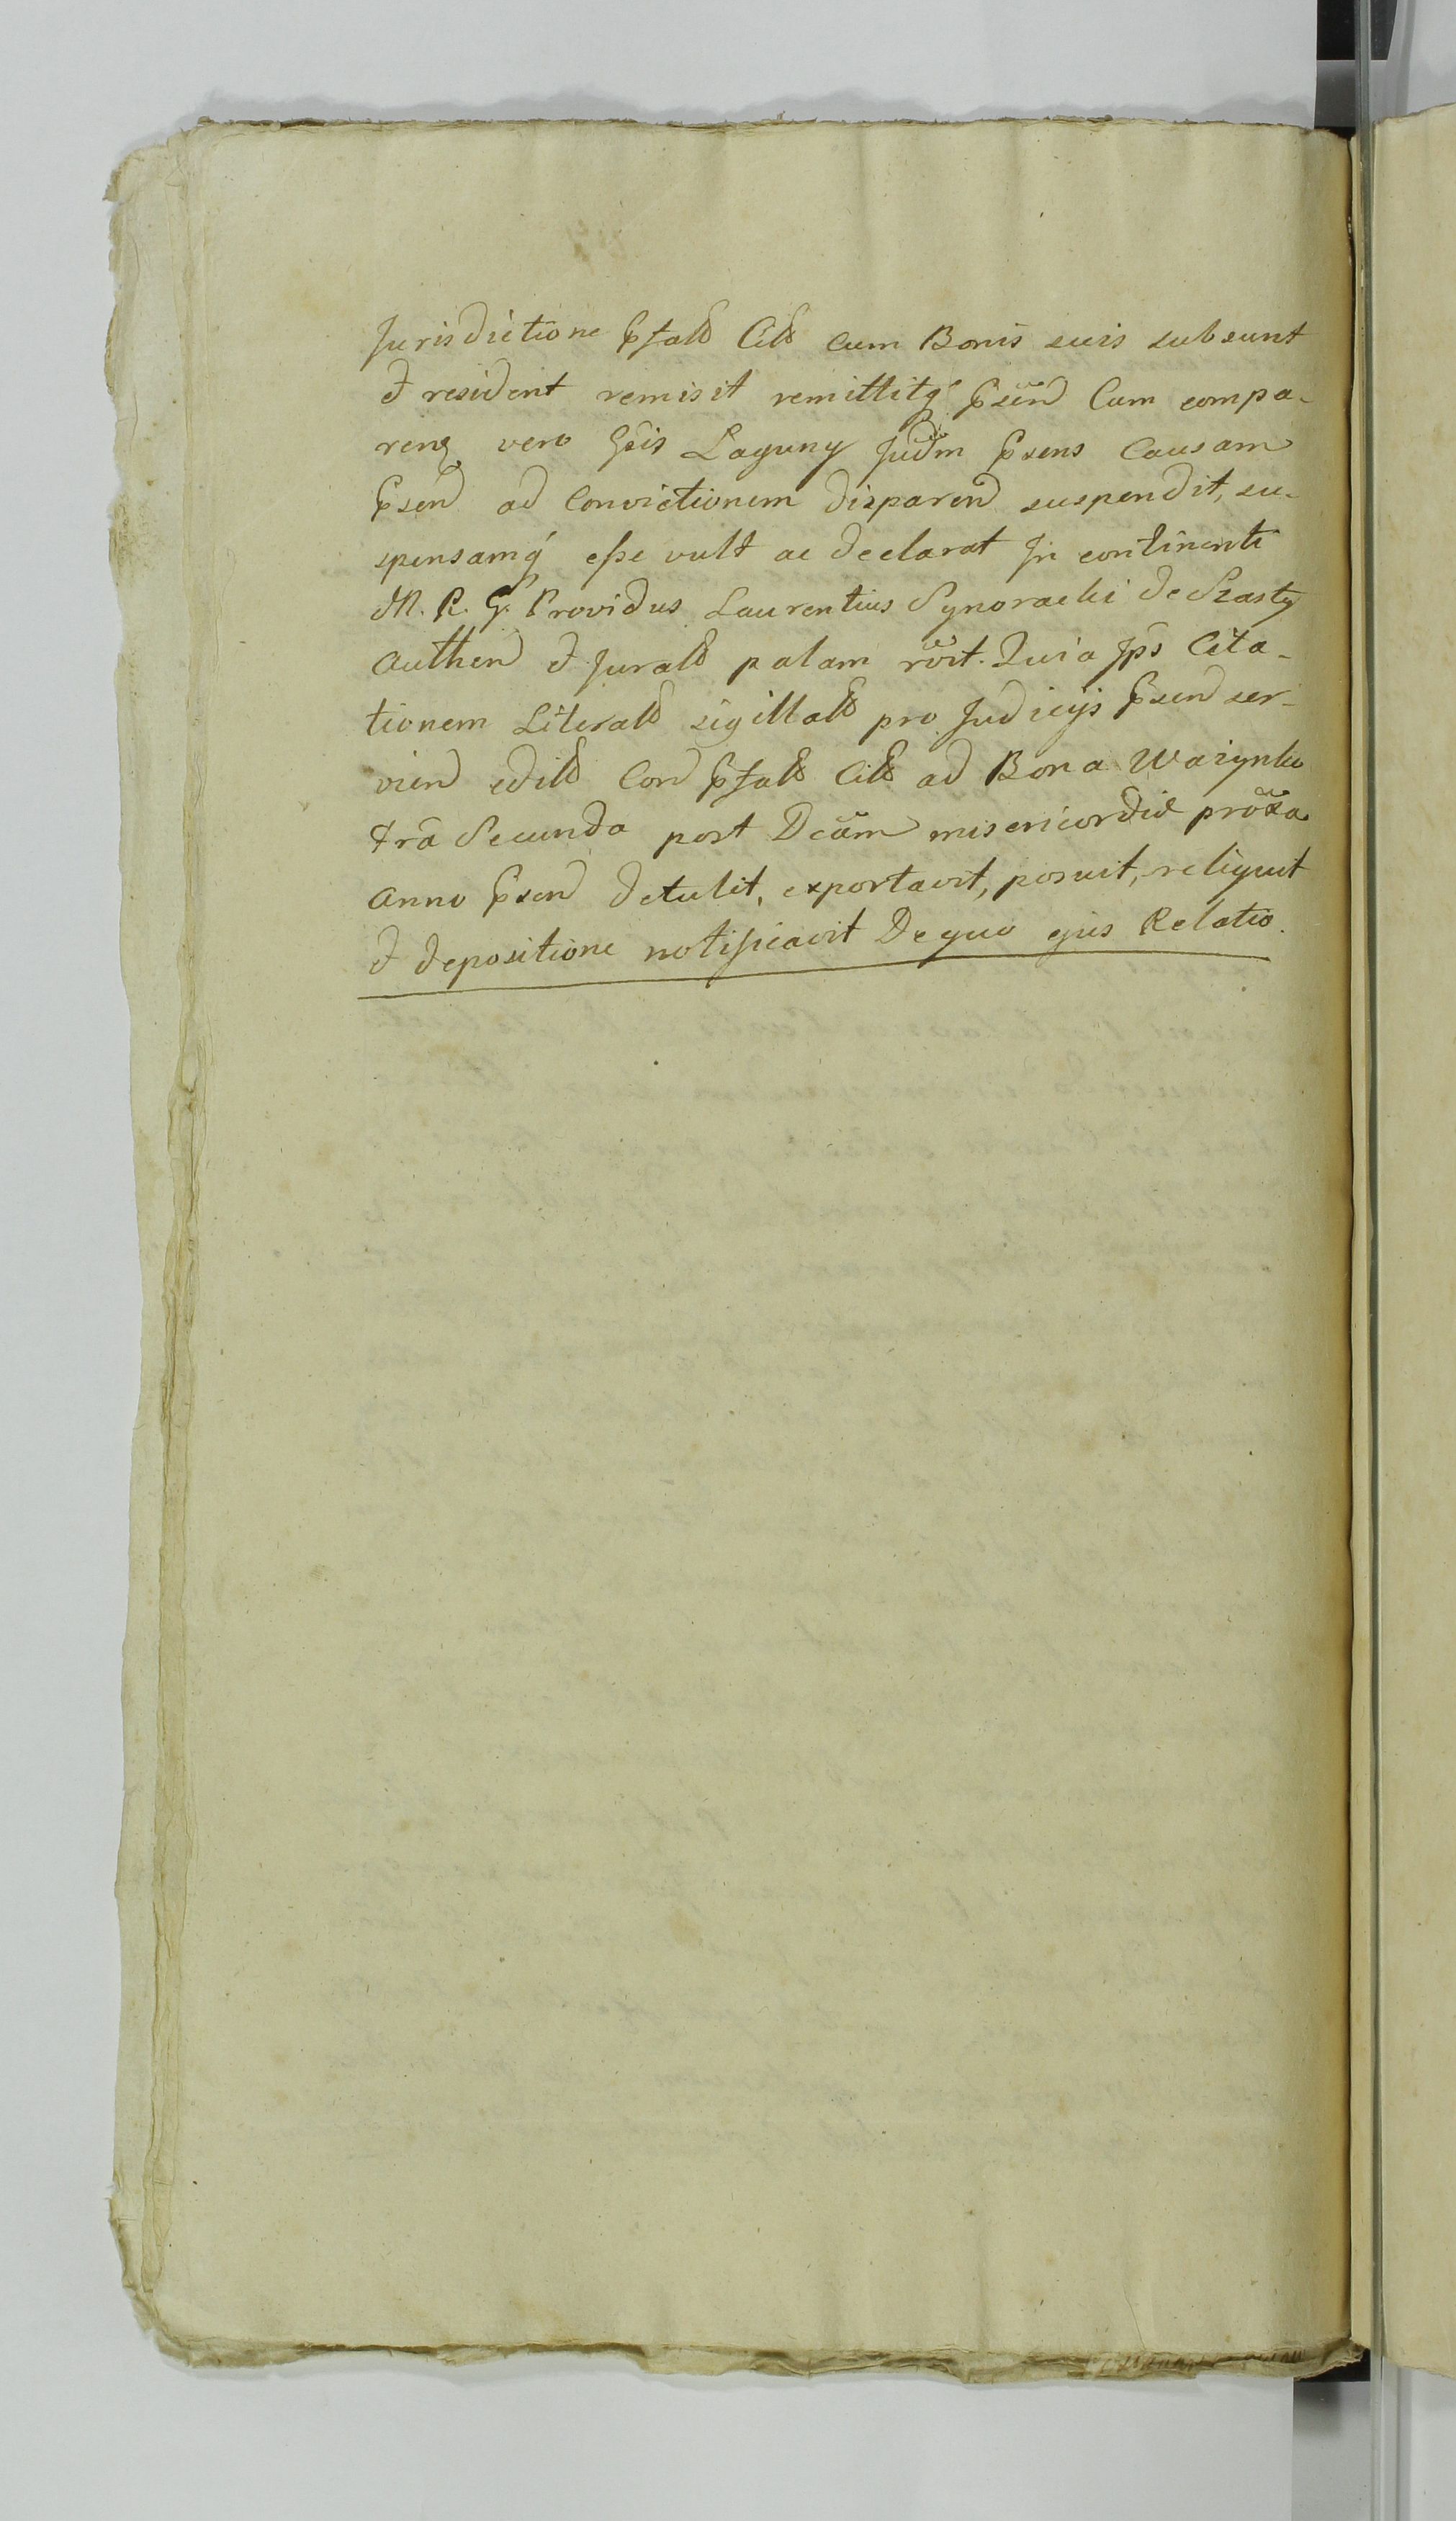 Jurisdictione Pfatt Citt cum Bonis suis subsunt
& resident remisit remittitq Psen Cum compa-
ren vero Gsis Laguny Judm Psens Causam
Psen ad Convictionem disparen suspendit, su-
spensamq eße vult ac declarat In continenti
M. R. G. Providus Laurentius Synoracki de Szasty
Authen & Juratt palam rōit. Quia Ips Cita-
tionem Literatt sigillatt pro Judicijs Psen ser-
vien editt Con Pfatt Citt ad Bona Warynku
Frā Secunda post Dcām misericordiæ prōxa
Anno Psen detulit, exportavit, posuit, reliquit
& depositione notificavit De quo ejus Relatio.